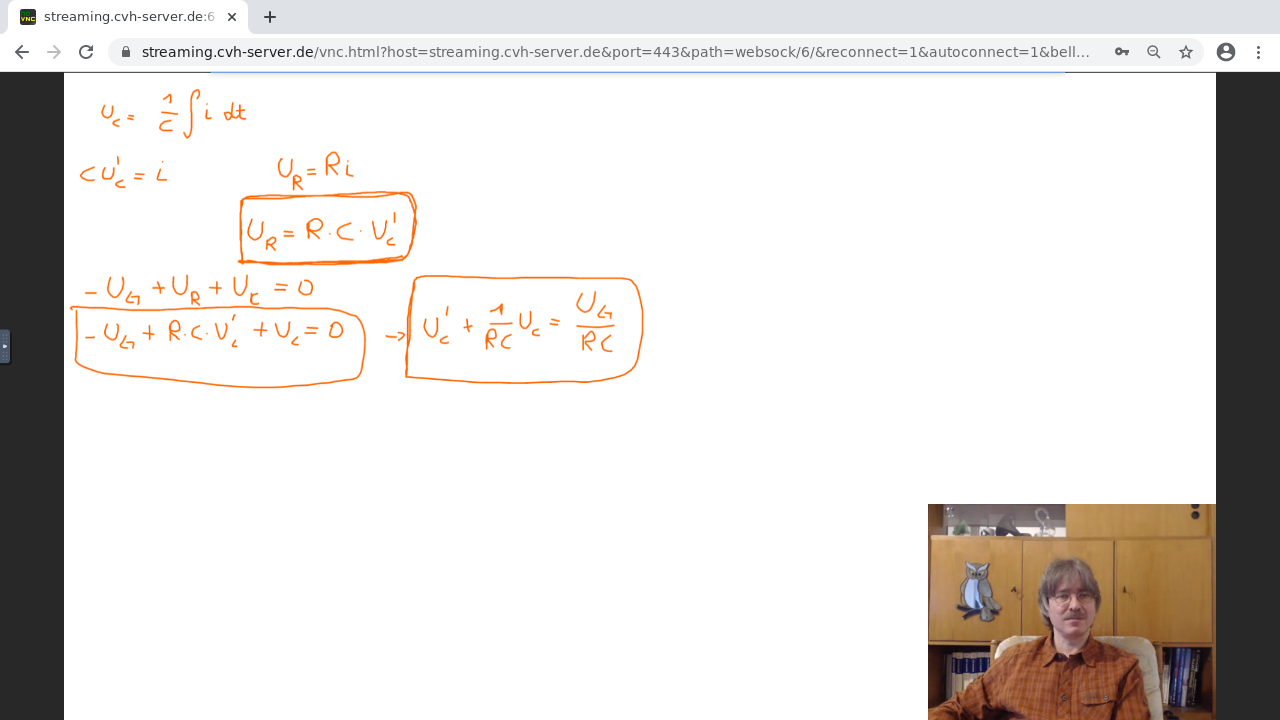 streaming.cvh-server.de:6
streaming.cvh-server.de/vnc.html?host=streaming.cvh-server.de&port=443&path=websock/6/&reconnect=1&autoconnect=1&bell...
U_c = 1/C ∫ i dt
C U_c' = i
U_R = R i
U_R = R · C · U_c'
- U_G + U_R + U_c = 0
- U_G + R · C · U_c' + U_c = 0 → U_c' + 1/RC U_c = U_G/RC